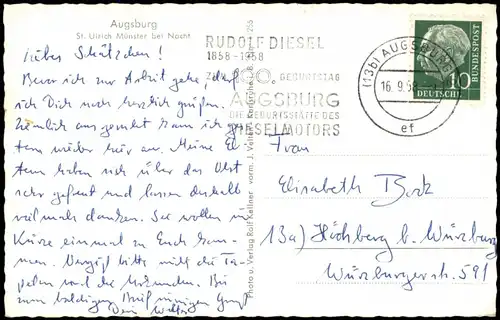 Augsburg
St. Ulrich Münster bei Nacht
Liebes Schätzchen!
Bevor ich zur Arbeit gehe, darf
ich Dich noch herzlich grüßen.
Ziemlich ausgeruht kam ich ge-
stern wieder hier an. Meine El-
tern haben sich über das Obst
sehr gefreut und lassen deshalb
vielmals danken. Sie wollen in
Kürze einmal zu Euch kom-
men. Vergiß bitte nicht die Ta-
peten und die Urkunden. Bis
zum baldigen Brief innigen Gruß
Dein
Photo u. Verlag Rolf Kellner vorm. J. Velten, Karlsruhe
RUDOLF DIESEL
1858-1958
100. GEBURTSTAG
AUGSBURG
DIE GEBURTSSTÄTTE DES
DIESELMOTORS
(13b) AUGSBURG
16.9.58
ef
10
DEUTSCHE
BUNDESPOST
Frau
Elisabeth Bock
13a) Höchberg b. Würzburg
Würzburgerstr. 591